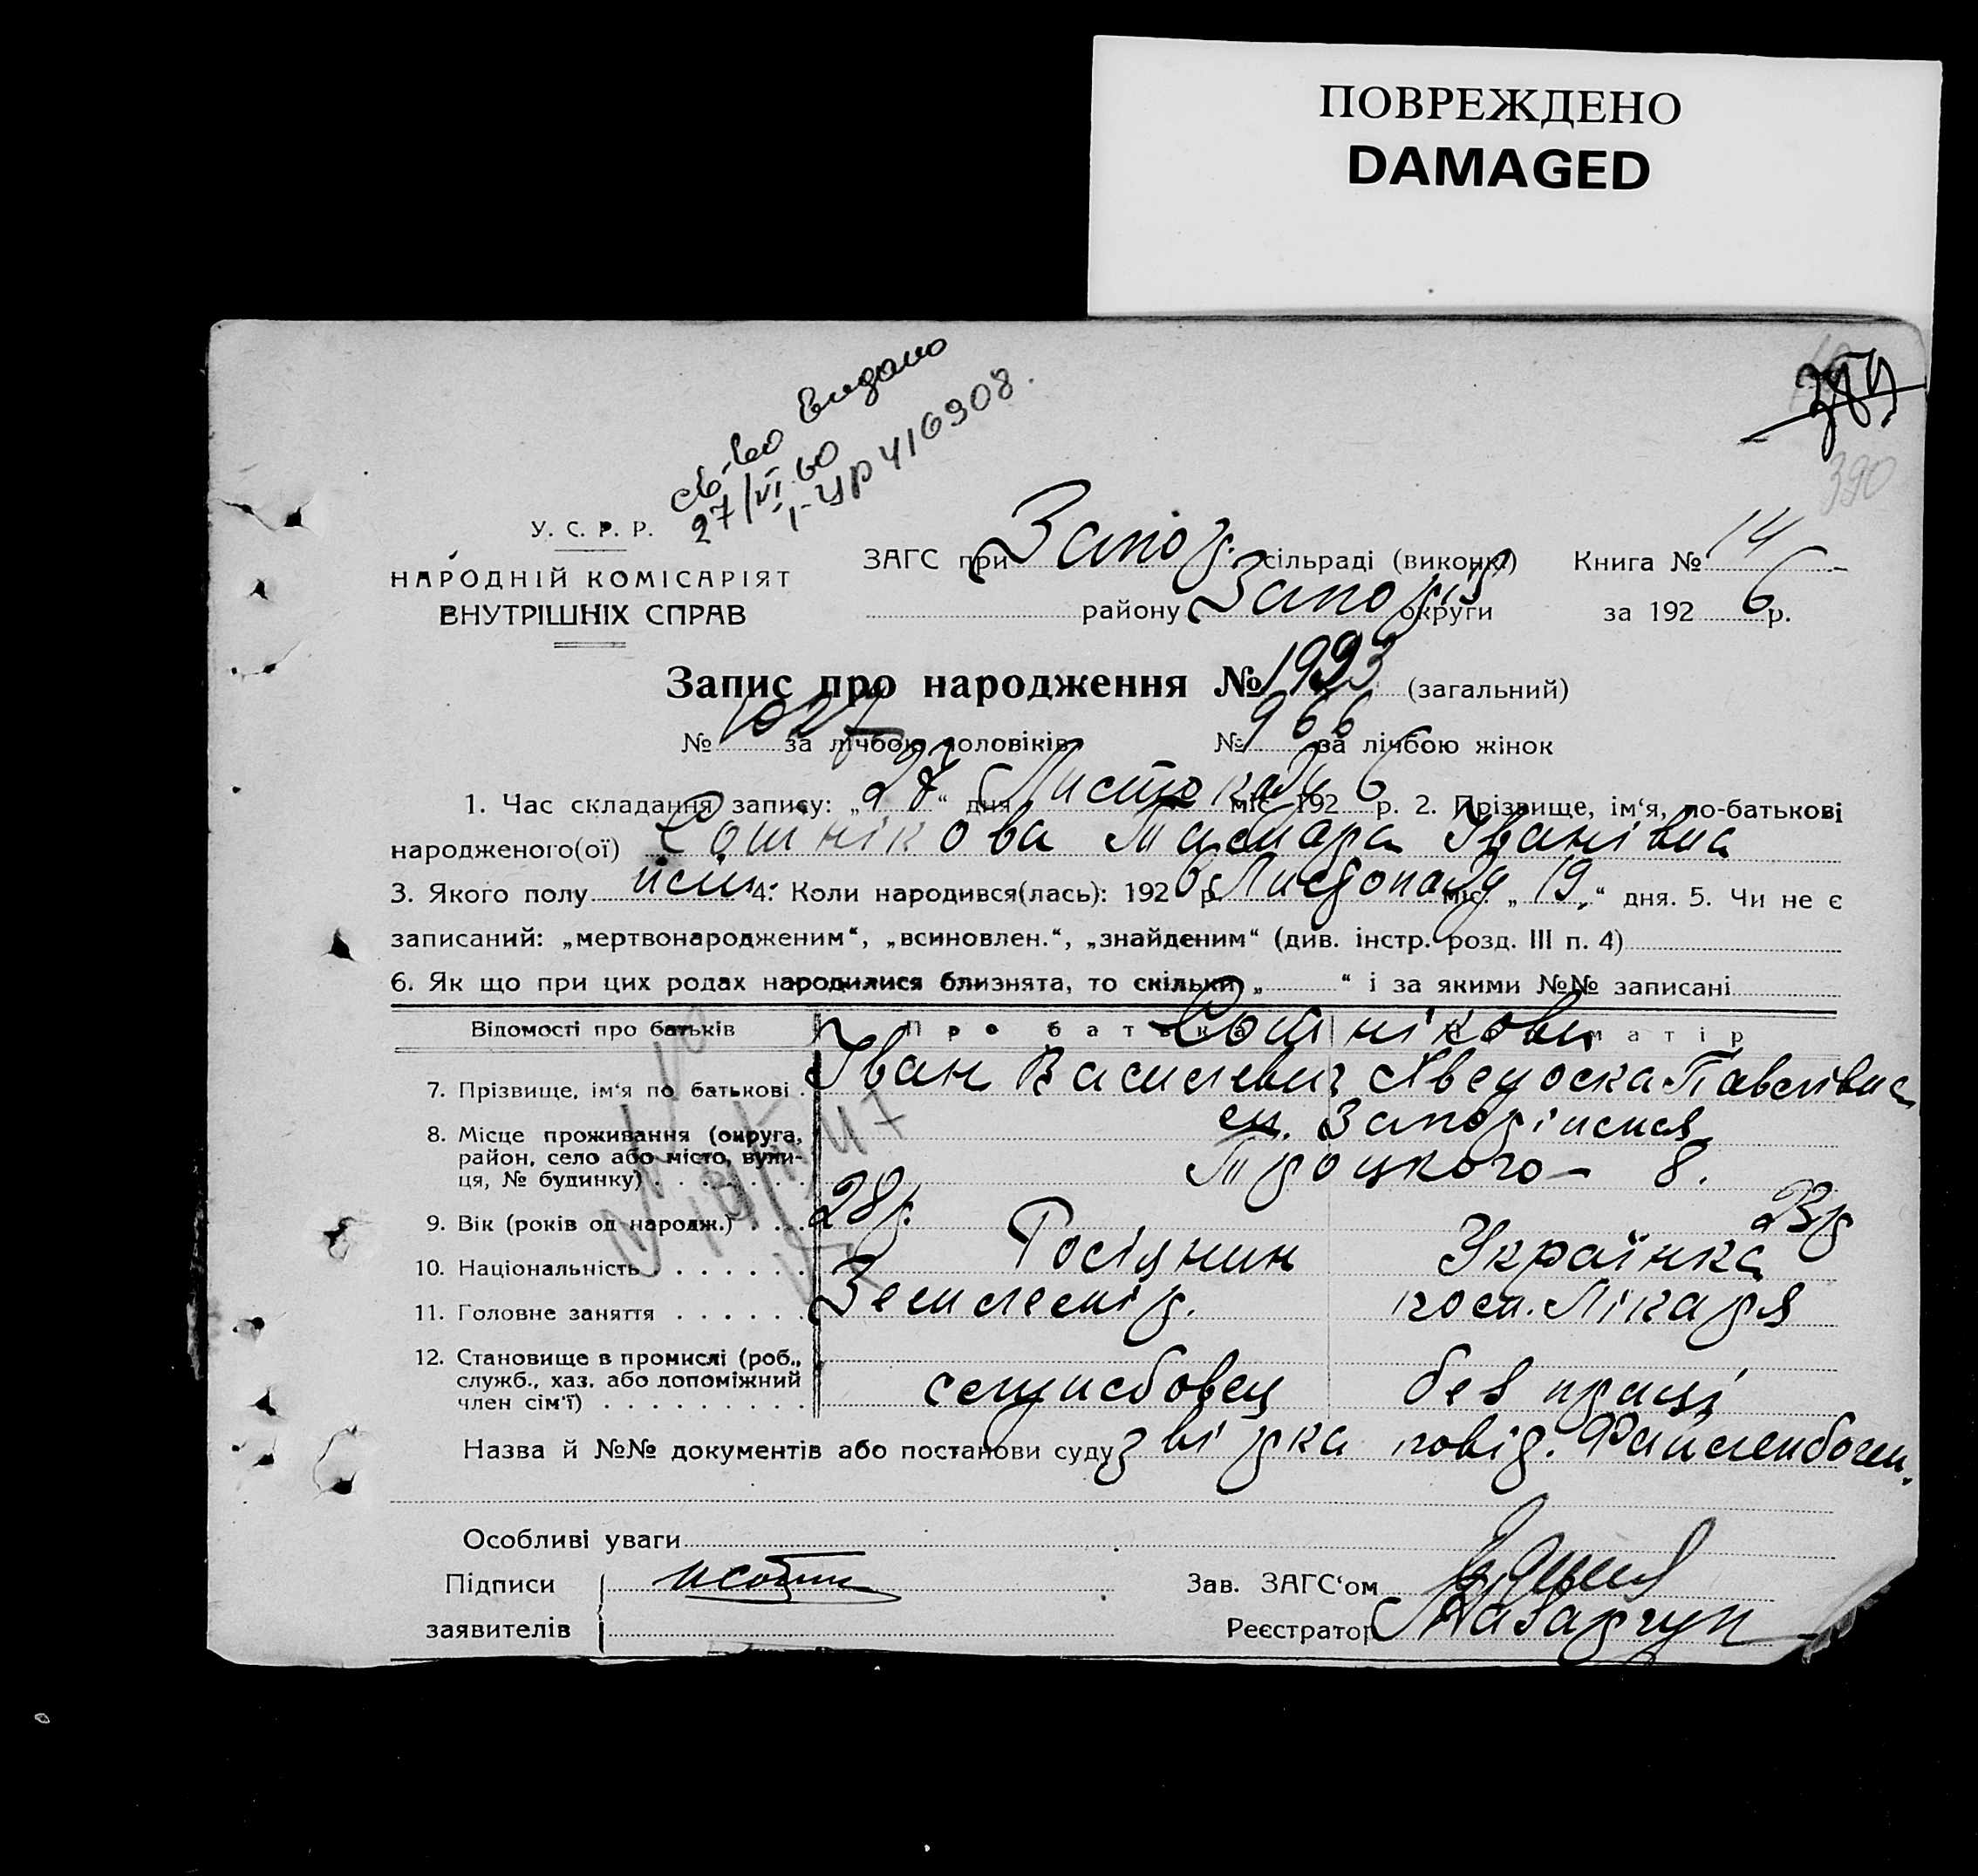 ПОВРЕЖДЕНО
DAMAGED
св-во видано
27/VI 60
390
У. С. Р. Р.
НАРОДНІЙ КОМІСАРІЯТ
ВНУТРІШНІХ СПРАВ
ЗАГС при Запор. сільраді (виконкі) Книга № 14
району Запоріз округи за 1926 р.
Запис про народження № 1993 (загальний)
№ 1027 за лічбою чоловіків № 966 за лічбою жінок
1. Час складання запису: „27“ дня Листопаду міс. 1926 р. 2. Прізвище, ім‘я, по-батькові
народженого(ої) Сотнікова Тамара Іванівна
3. Якого полу жін. 4. Коли народився(лась): 1926 р. Листопаду міс. „19“ дня. 5. Чи не є
записаний: „мертвонародженим“, „всиновлен.“, „знайденим“ (див. інстр. розд. III п. 4)
6. Як що при цих родах народилися близнята, то скільки „ “ і за якими №№ записані
Відомості про батьків Про батька матір
Сотнікови
7. Прізвище, ім‘я по батькові Іван Василевич Явдоска Павлівна
8. Місце проживання (округа, район, село або місто, вулиця, № будинку) Запоріжжя
Троцкого – 8.
9. Вік (років од народж.) 28р. 23р
10. Національність Росіянин Українка
11. Головне заняття Землемір. Лікаря
12. Становище в промислі (роб., служб., хаз. або допоміжний член сім‘ї) службовец без праці
Назва й №№ документів або постанови суду
Особливі уваги
Підписи Зав. ЗАГС‘ом
заявителів Реєстратор Назарчук